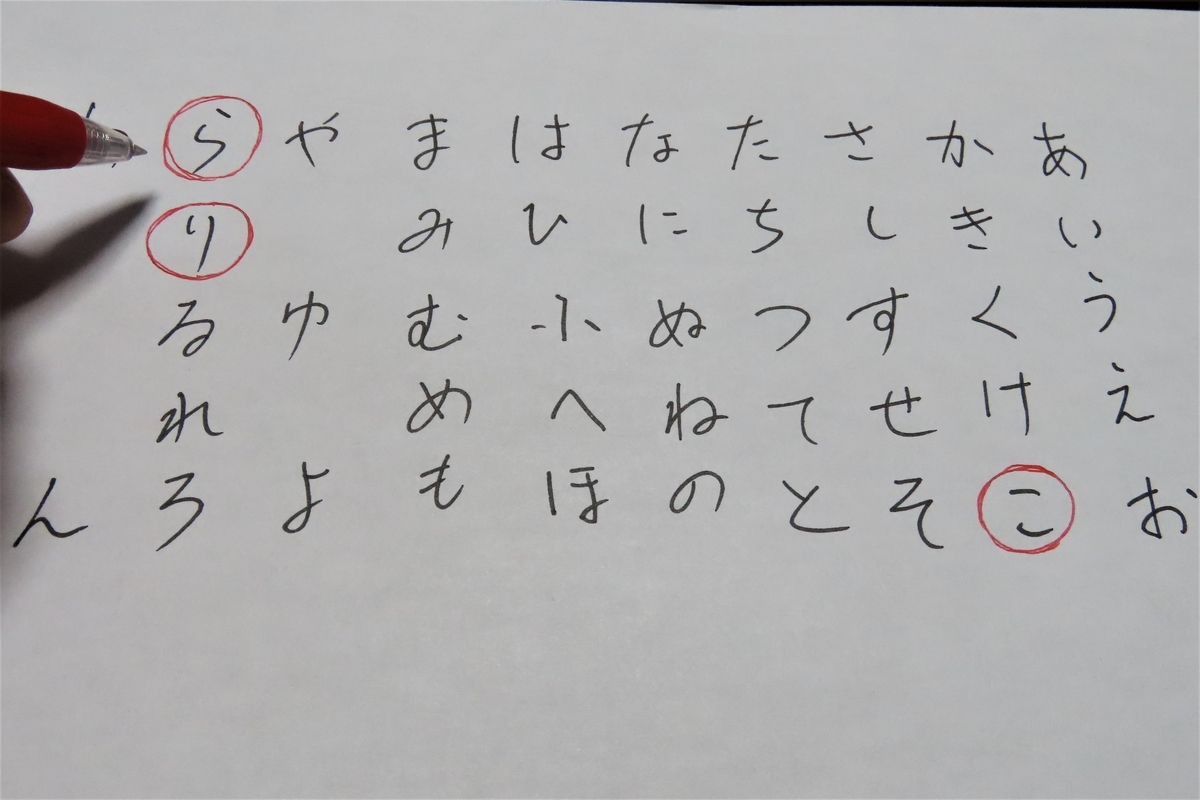 あいうえお
かきくけこ
さしすせそ
たちつてと
なにぬねの
はひふへほ
まみむめも
やゆよ
らりるれろ
ん